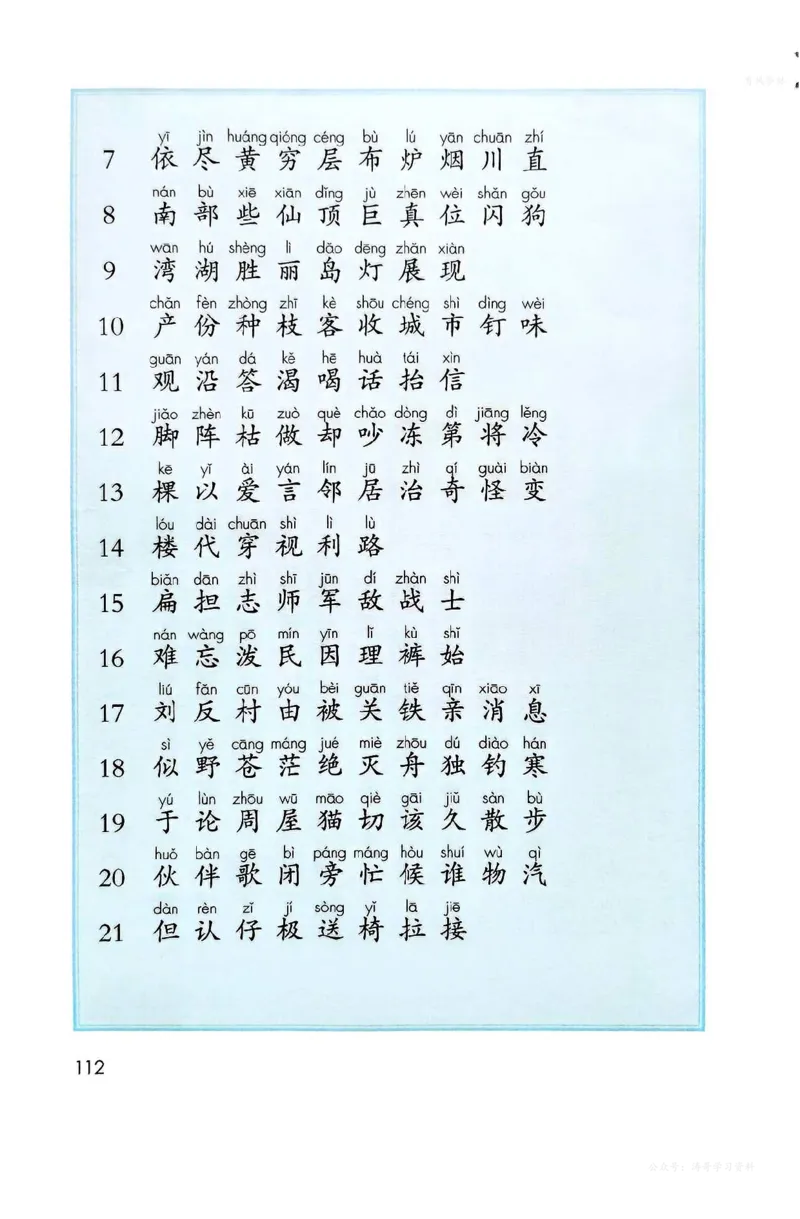 yī jìn huáng qióng céng bù lú yān chuān zhí
7 依 尽 黄 穷 层 布 炉 烟 川 直
nán bù xiē xiān dǐng jù zhēn wèi shǎn gǒu
8 南 部 些 仙 顶 巨 真 位 闪 狗
wān hú shèng lì dǎo dēng zhǎn xiàn
9 湾 湖 胜 丽 岛 灯 展 现
chǎn fèn zhòng zhī kè shōu chéng shì dìng wèi
10 产 份 种 枝 客 收 城 市 钉 味
guān yán dá kě hē huà tái xìn
11 观 沿 答 渴 喝 话 抬 信
jiǎo zhèn kū zuò què chǎo dòng dì jiāng lěng
12 脚 阵 枯 做 却 吵 冻 第 将 冷
kē yǐ ài yán lín jū zhì qí guài biàn
13 棵 以 爱 言 邻 居 治 奇 怪 变
lóu dài chuān shì lì lù
14 楼 代 穿 视 利 路
biǎn dān zhì shī jūn dí zhàn shì
15 扁 担 志 师 军 敌 战 士
nán wàng pō mín yīn lǐ kù shǐ
16 难 忘 泼 民 因 理 裤 始
liú fǎn cūn yóu bèi guān tiě qīn xiāo xī
17 刘 反 村 由 被 关 铁 亲 消 息
sì yě cāng máng jué miè zhōu dú diào hán
18 似 野 苍 茫 绝 灭 舟 独 钓 寒
yú lùn zhōu wū māo qiè gāi jiǔ sàn bù
19 于 论 周 屋 猫 切 该 久 散 步
huǒ bàn gē bì páng máng hòu shuí wù qì
20 伙 伴 歌 闭 旁 忙 候 谁 物 汽
dàn rèn zǐ jí sòng yǐ lā jiē
21 但 认 仔 极 送 椅 拉 接
112